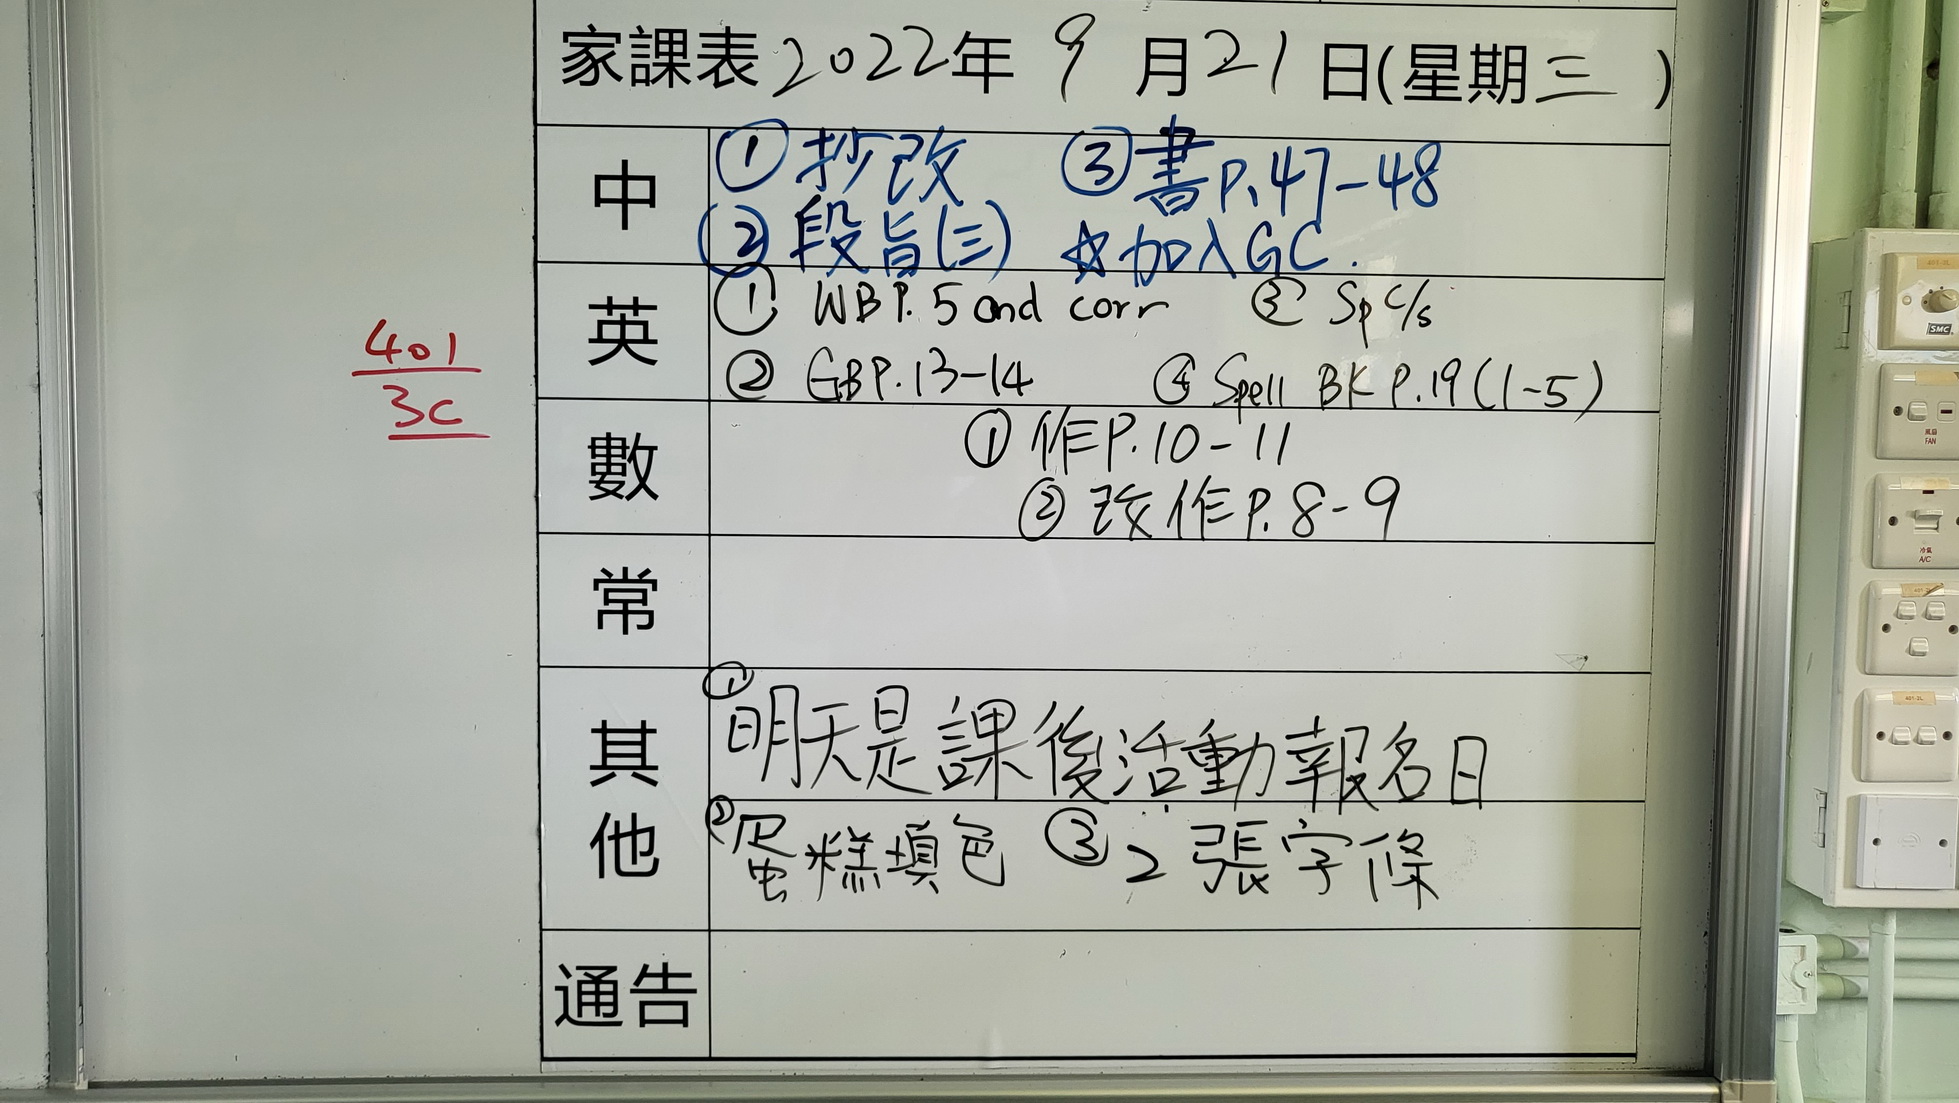 家課表2022年 9月21日(星期三)
中
① 抄改 ③ 書P.47-48
② 段旨(三) ☆加入GC.
英
① WB P.5 and corr ③ Sp c/s
② GB P.13-14 ④ Spell BK P.19 (1-5)
數
① 作P.10-11
② 改作P.8-9
常
其他
① 明天是課後活動報名日
② 蛋糕填色 ③ 2張字條
通告
401
3C
SMC
風扇
FAN
冷氣
A/C